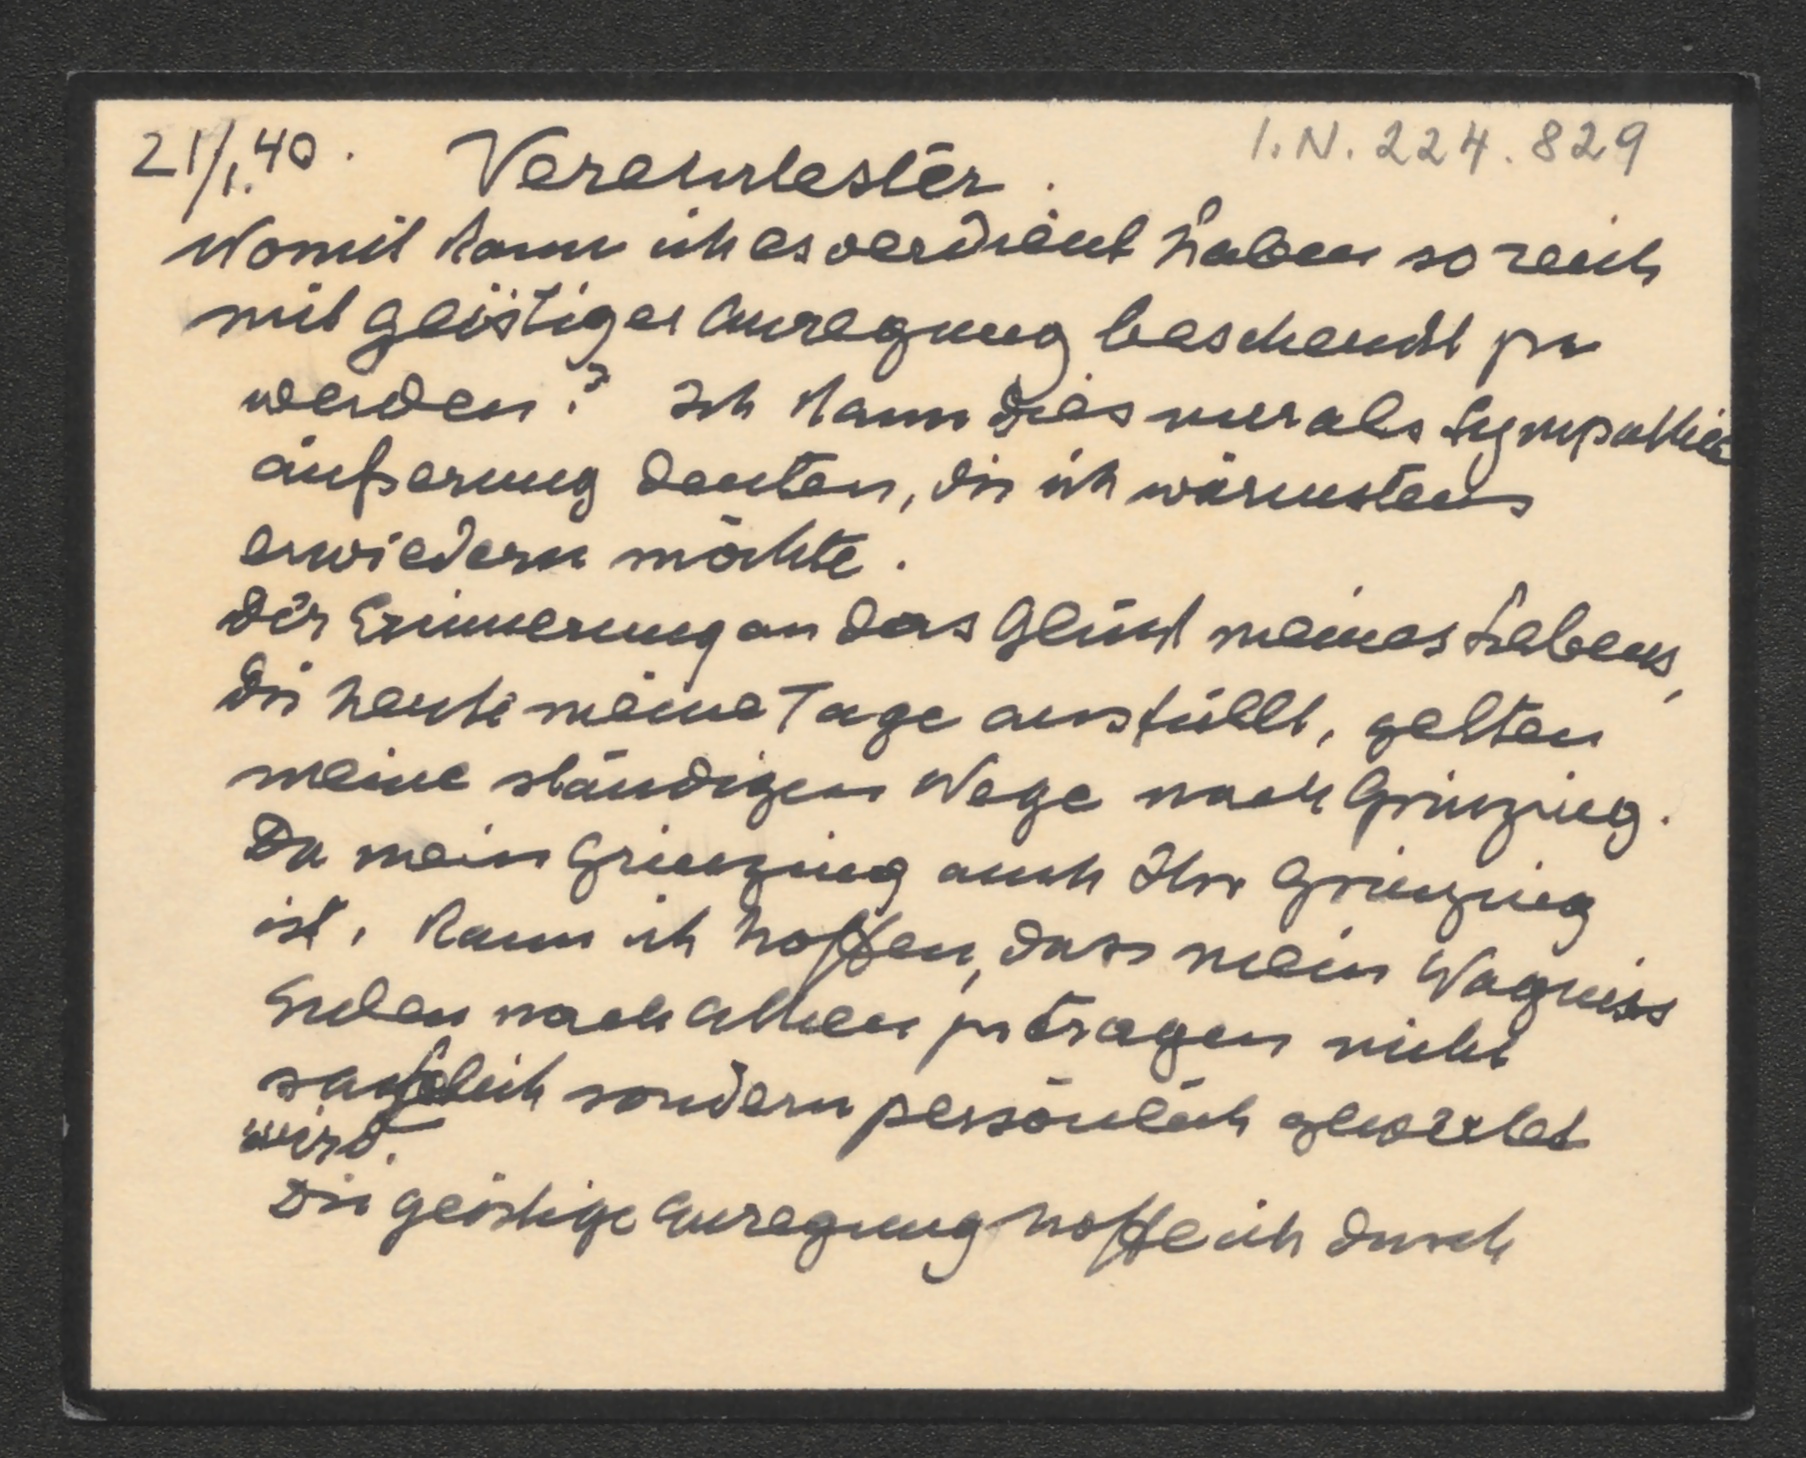 21/1.40. Verehrtester. I.N. 224.829
Womit kann ich es verdient haben so reich
mit geistiger Anregung beschenkt zu
werden? Ich kann dies nur als Sympathie
äußerung deuten, die ich wärmstens
erwiedern möchte.
Der Erinnerung an das Glück meines Lebens,
die heute meine Tage ausfüllt, gelten
meine ständigen Wege nach Grinzing.
Da mein Grinzing auch Ihr Grinzing
ist, kann ich hoffen, dass mein Wagniss
Eulen nach Athen zu tragen nicht
sachlich sondern persönlich gewertet
wird.
Die geistige Anregung hoffe ich durch